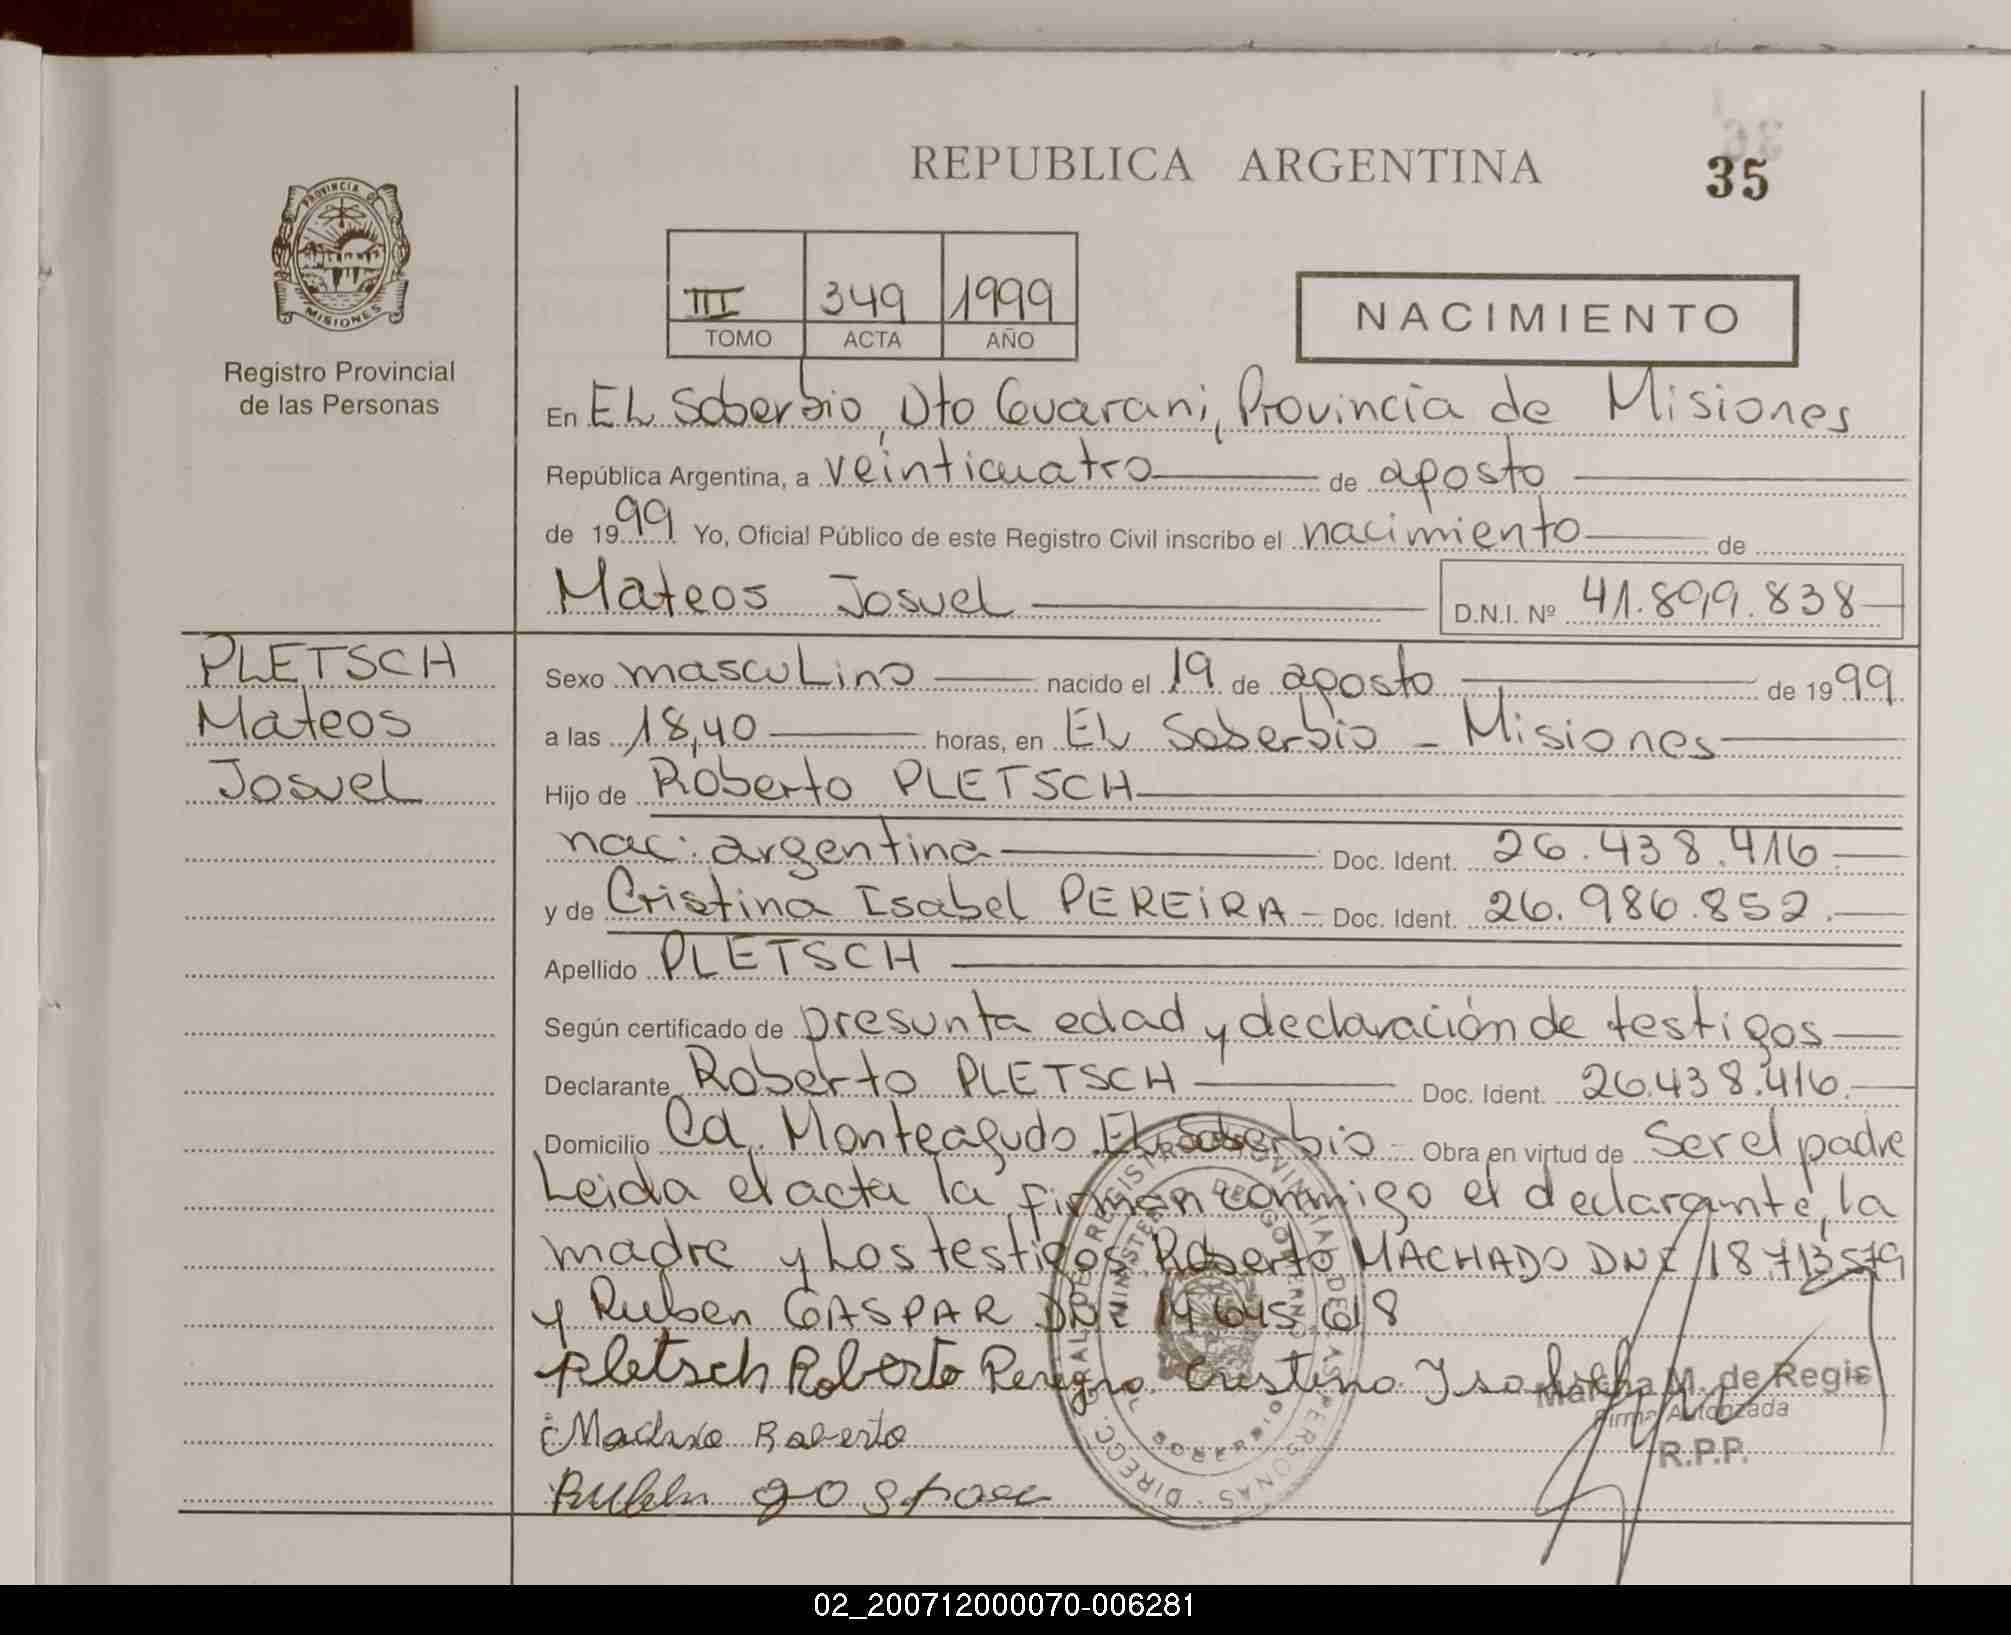 REPUBLICA ARGENTINA
35
PROVINCIA DE
MISIONES
Registro Provincial
de las Personas
III 349 1999
TOMO ACTA AÑO
NACIMIENTO
En EL Soberbio, Dto Guarani, Provincia de Misiones
República Argentina, a veinticuatro de agosto
de 1999 Yo, Oficial Público de este Registro Civil inscribo el nacimiento de
Mateos Josuel D.N.I. Nº 41.899.838
PLETSCH
Mateos
Josuel
Sexo masculino nacido el 19 de agosto de 1999
a las 18,40 horas, en EL Soberbio - Misiones
Hijo de Roberto PLETSCH
nac: argentina Doc. Ident. 26.438.416
y de Cristina Isabel PEREIRA - Doc. Ident. 26.986.852.
Apellido PLETSCH
Según certificado de presunta edad y declaración de testigos
Declarante Roberto PLETSCH Doc. Ident. 26.438.416.
Domicilio Cd. Monteagudo EL Soberbio - Obra en virtud de Ser el padre
Leida el acta la firman conmigo el declarante, la
madre y Los testigos Roberto MACHADO DNI 18.713.579
y Ruben GASPAR DNI 14645618
pletsch Roberto Cristina Isabel
Roberto
Ruben gaspar
DIRECC. GRAL. DE REGISTRO PROVINCIAL DE LAS PERSONAS
MINISTERIO DE GOBIERNO
Marcha M. de Regis
Firma Autorizada
R.P.P.
02_200712000070-006281